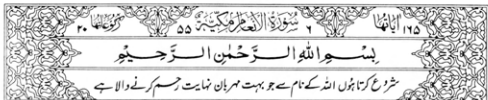 اٰیاتها ۱۶۵ ۶ سُوْرَةُ الْاَنْعَامِ مَكِّیَّةٌ ۵۵ رکوعاتها ۲۰
بِسْمِ اللهِ الرَّحْمٰنِ الرَّحِیْمِ
شروع کرتا ہوں اللہ کے نام سے جو بہت مہربان نہایت رحم کرنے والا ہے